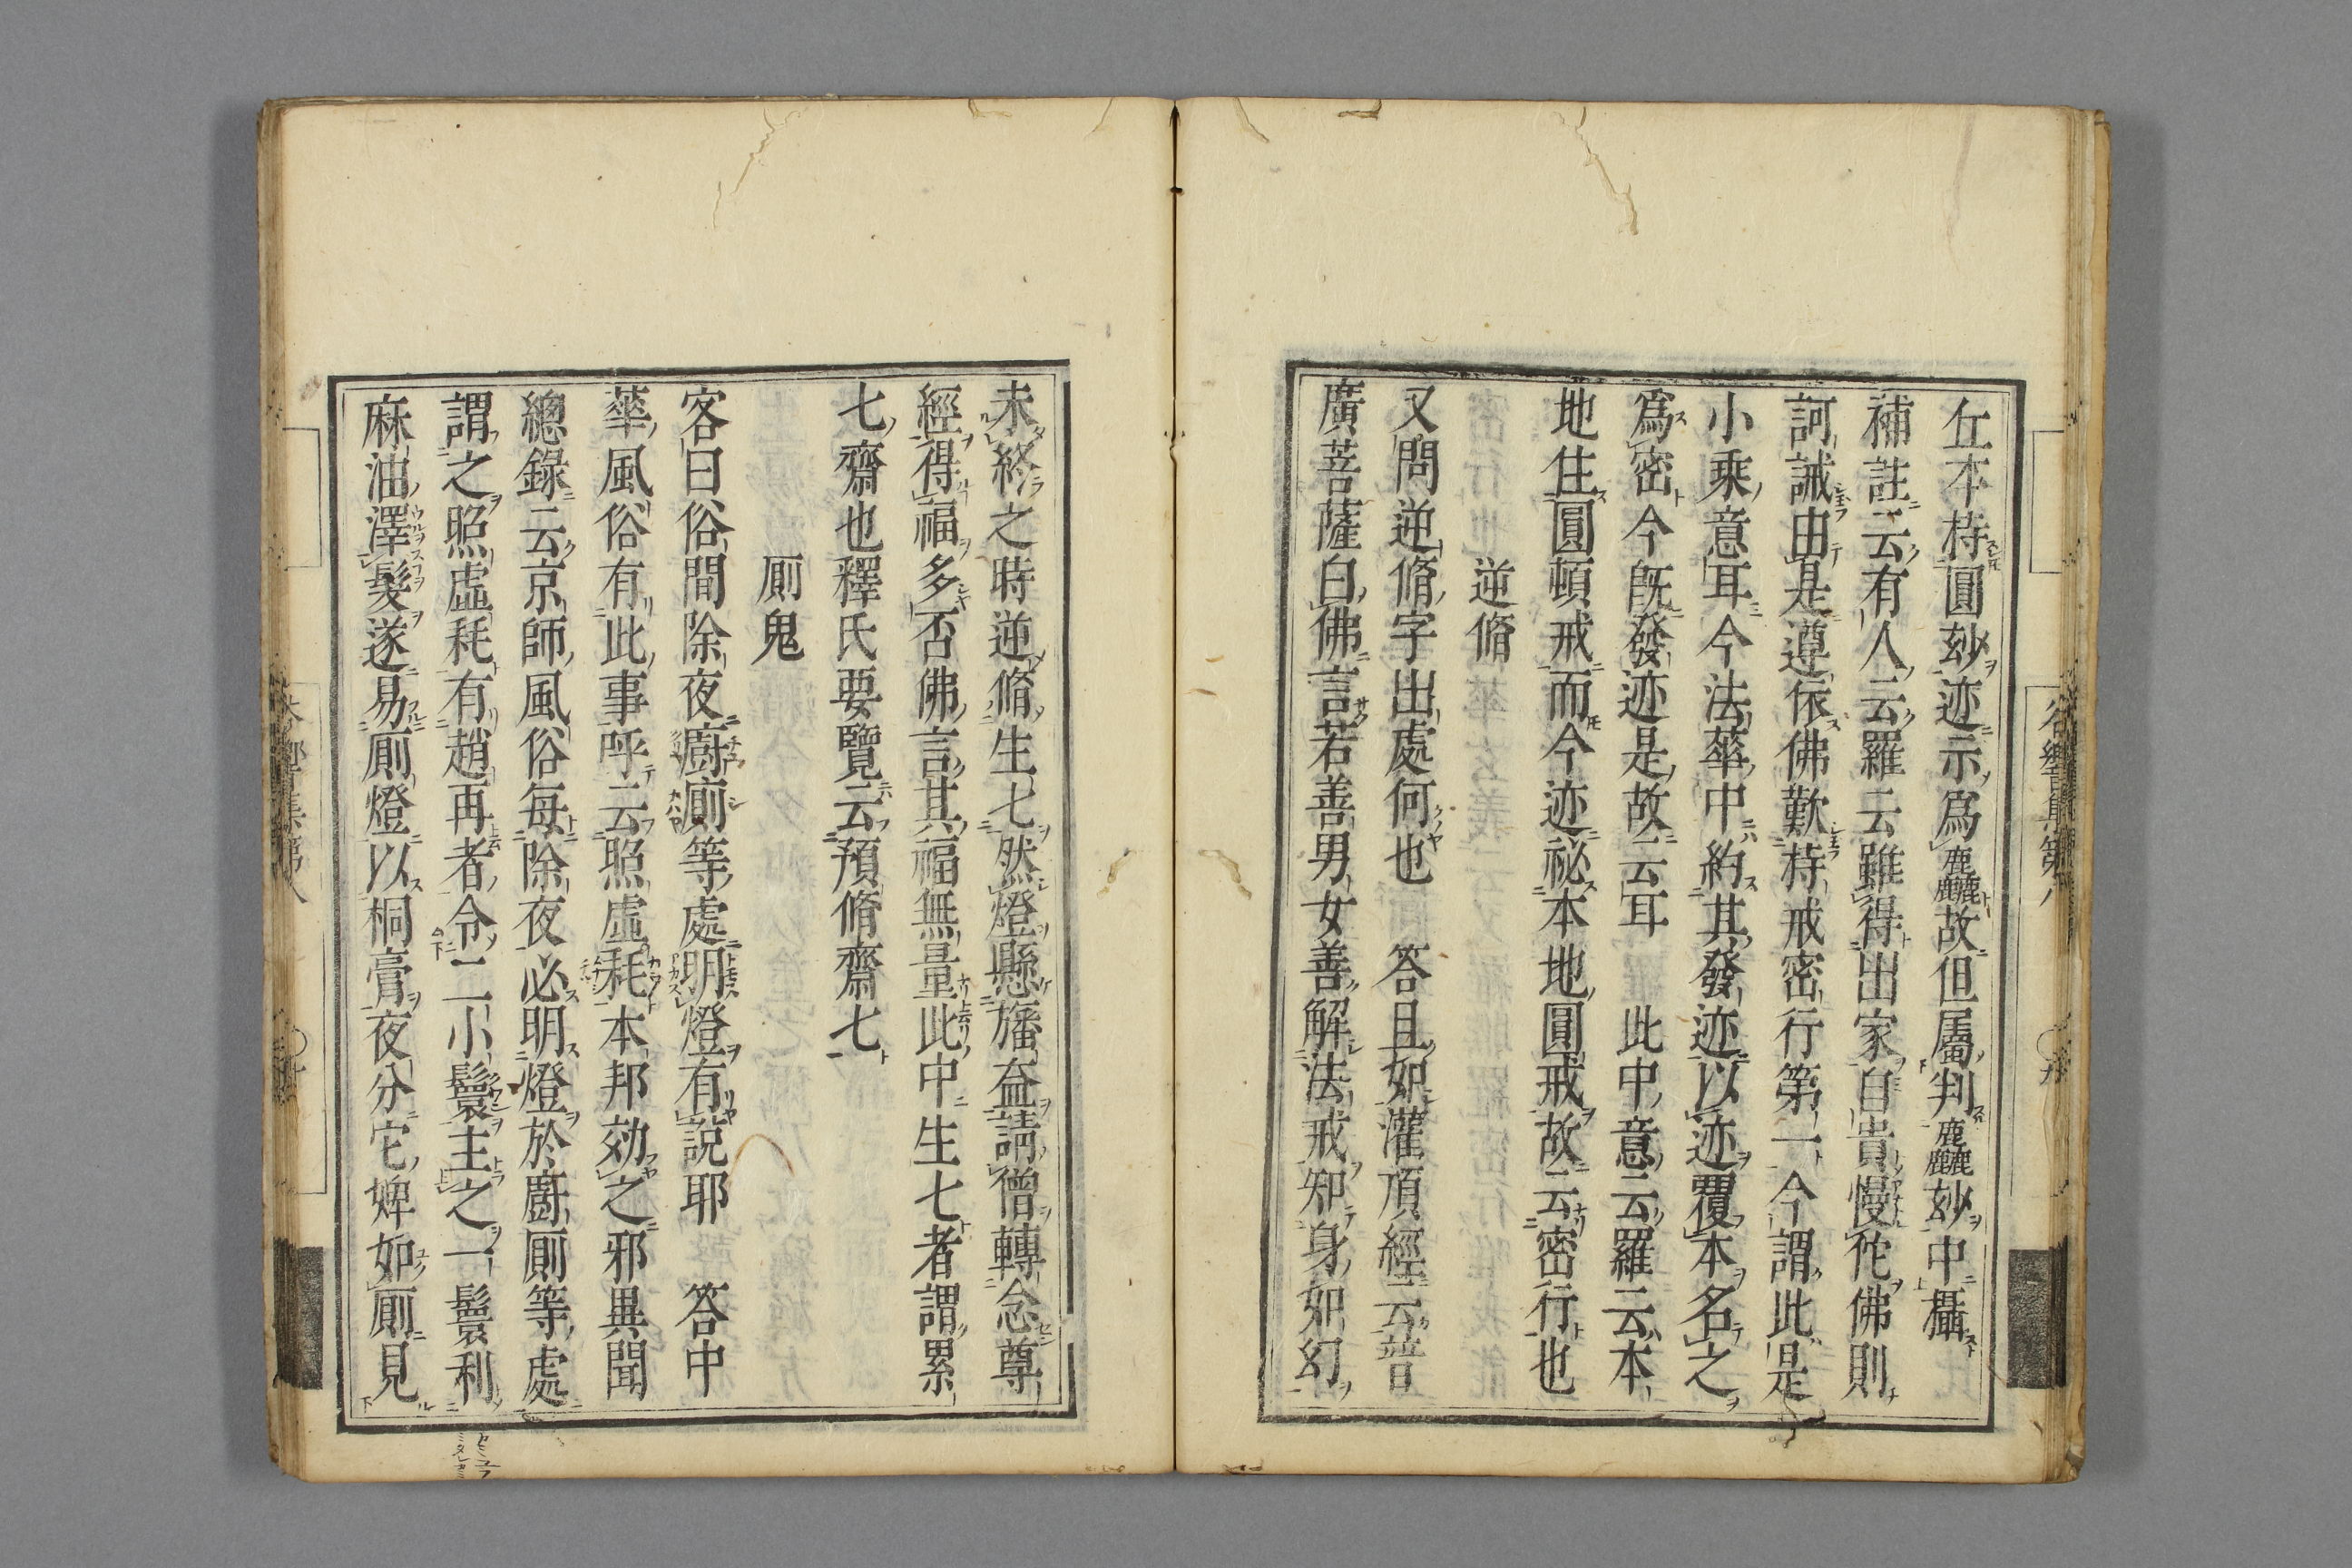 丘本持圓玅迹示爲麤故但屬判麤玅中攝
補註云有人云羅云雖得出家自貴慢佗佛則
訶誡由是遵依佛歎持戒密行第一今謂此是
小乘意耳今法華中約其發迹以迹覆本名之
爲密今既發迹是故云耳　此中意云羅云本
地住圓頓戒而今迹祕本地圓戒故云密行也
逆脩
又問逆脩字出處何也　答且如灌頂經云普
廣菩薩白佛言若善男女善解法戒知身如幻
未終之時逆脩生七然燈懸旛益請僧轉念尊
經得福多否佛言其福無量此中生七者謂累
七齋也釋氏要覽云預脩齋七
厠鬼
客曰俗間除夜廚厠等處明燈有說耶　答中
華風俗有此事呼云照虛耗本邦効之邪異聞
總錄云京師風俗每除夜必明燈於廚厠等處
謂之照虛耗有趙再者令二小鬟主之一鬟利
麻油澤髮遂易厠燈以桐膏夜分它婢如厠見